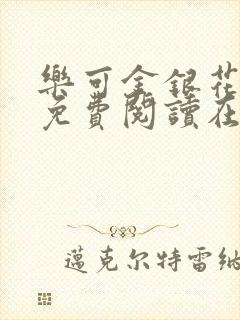 樂可金銀花
免費閱讀在
邁克尔特雷納